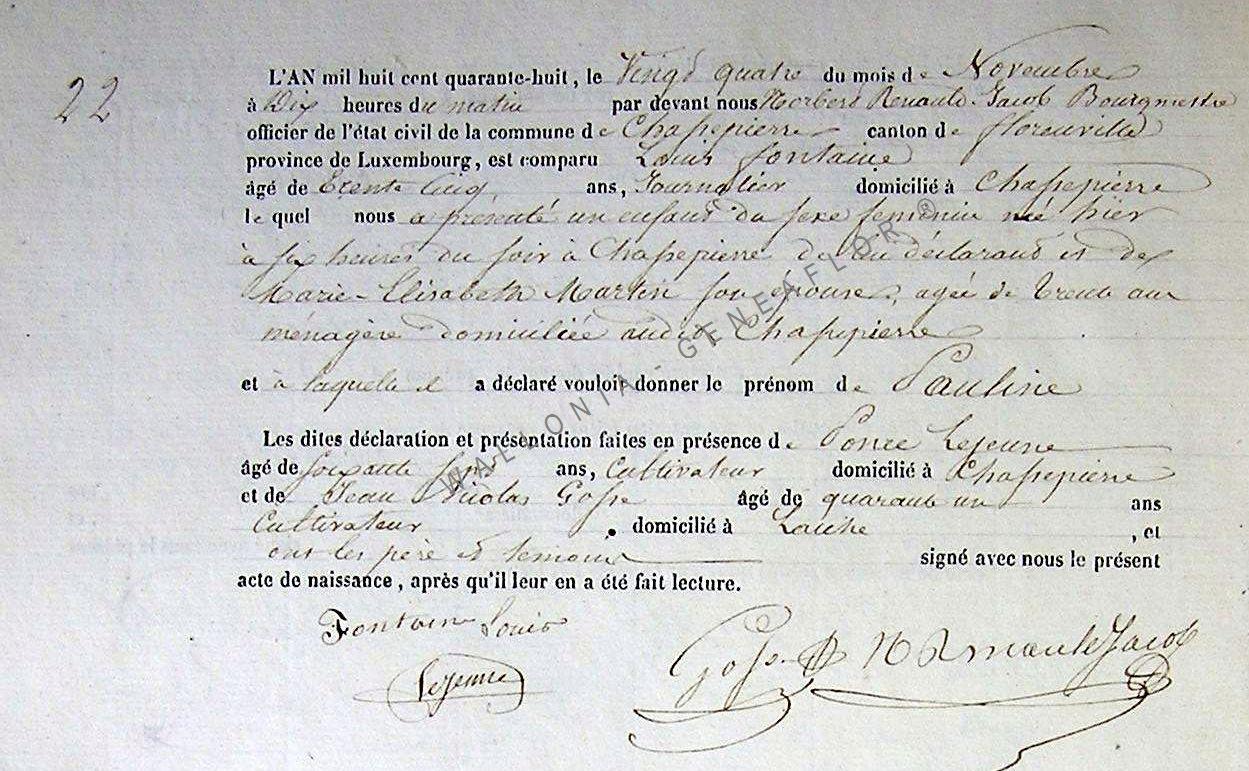 22
L'AN mil huit cent quarante-huit, le Vingt quatre du mois de Novembre
à Dix heures du matin par devant nous Norbert Renauld-Jacob Bourgmestre
officier de l'état civil de la commune de Chassepierre canton de florenville
province de Luxembourg, est comparu Louis fontaine
âgé de trente cinq ans, Journalier domicilié à Chassepierre
le quel nous a présenté un enfant du sexe feminin né hier
à six heures du soir à Chassepierre de lui déclarant et de
Marie-Elisabeth Martin son épouse, agée de trente ans
ménagère domiciliée audit Chassepierre
et à laquelle il a déclaré vouloir donner le prénom de Pauline
Les dites déclaration et présentation faites en présence de Ponce Lejeune
âgé de soixante ans, Cultivateur domicilié à Chassepierre
et de Jean Nicolas Gosse âgé de quarante un ans
Cultivateur . domicilié à , et
ont les père et temoins signé avec nous le présent
acte de naissance, après qu'il leur en a été fait lecture.
Fontaine Louis
Lejeune
Gosse N Renauld Jacob
WALLONIA - GENEAFLOR ®